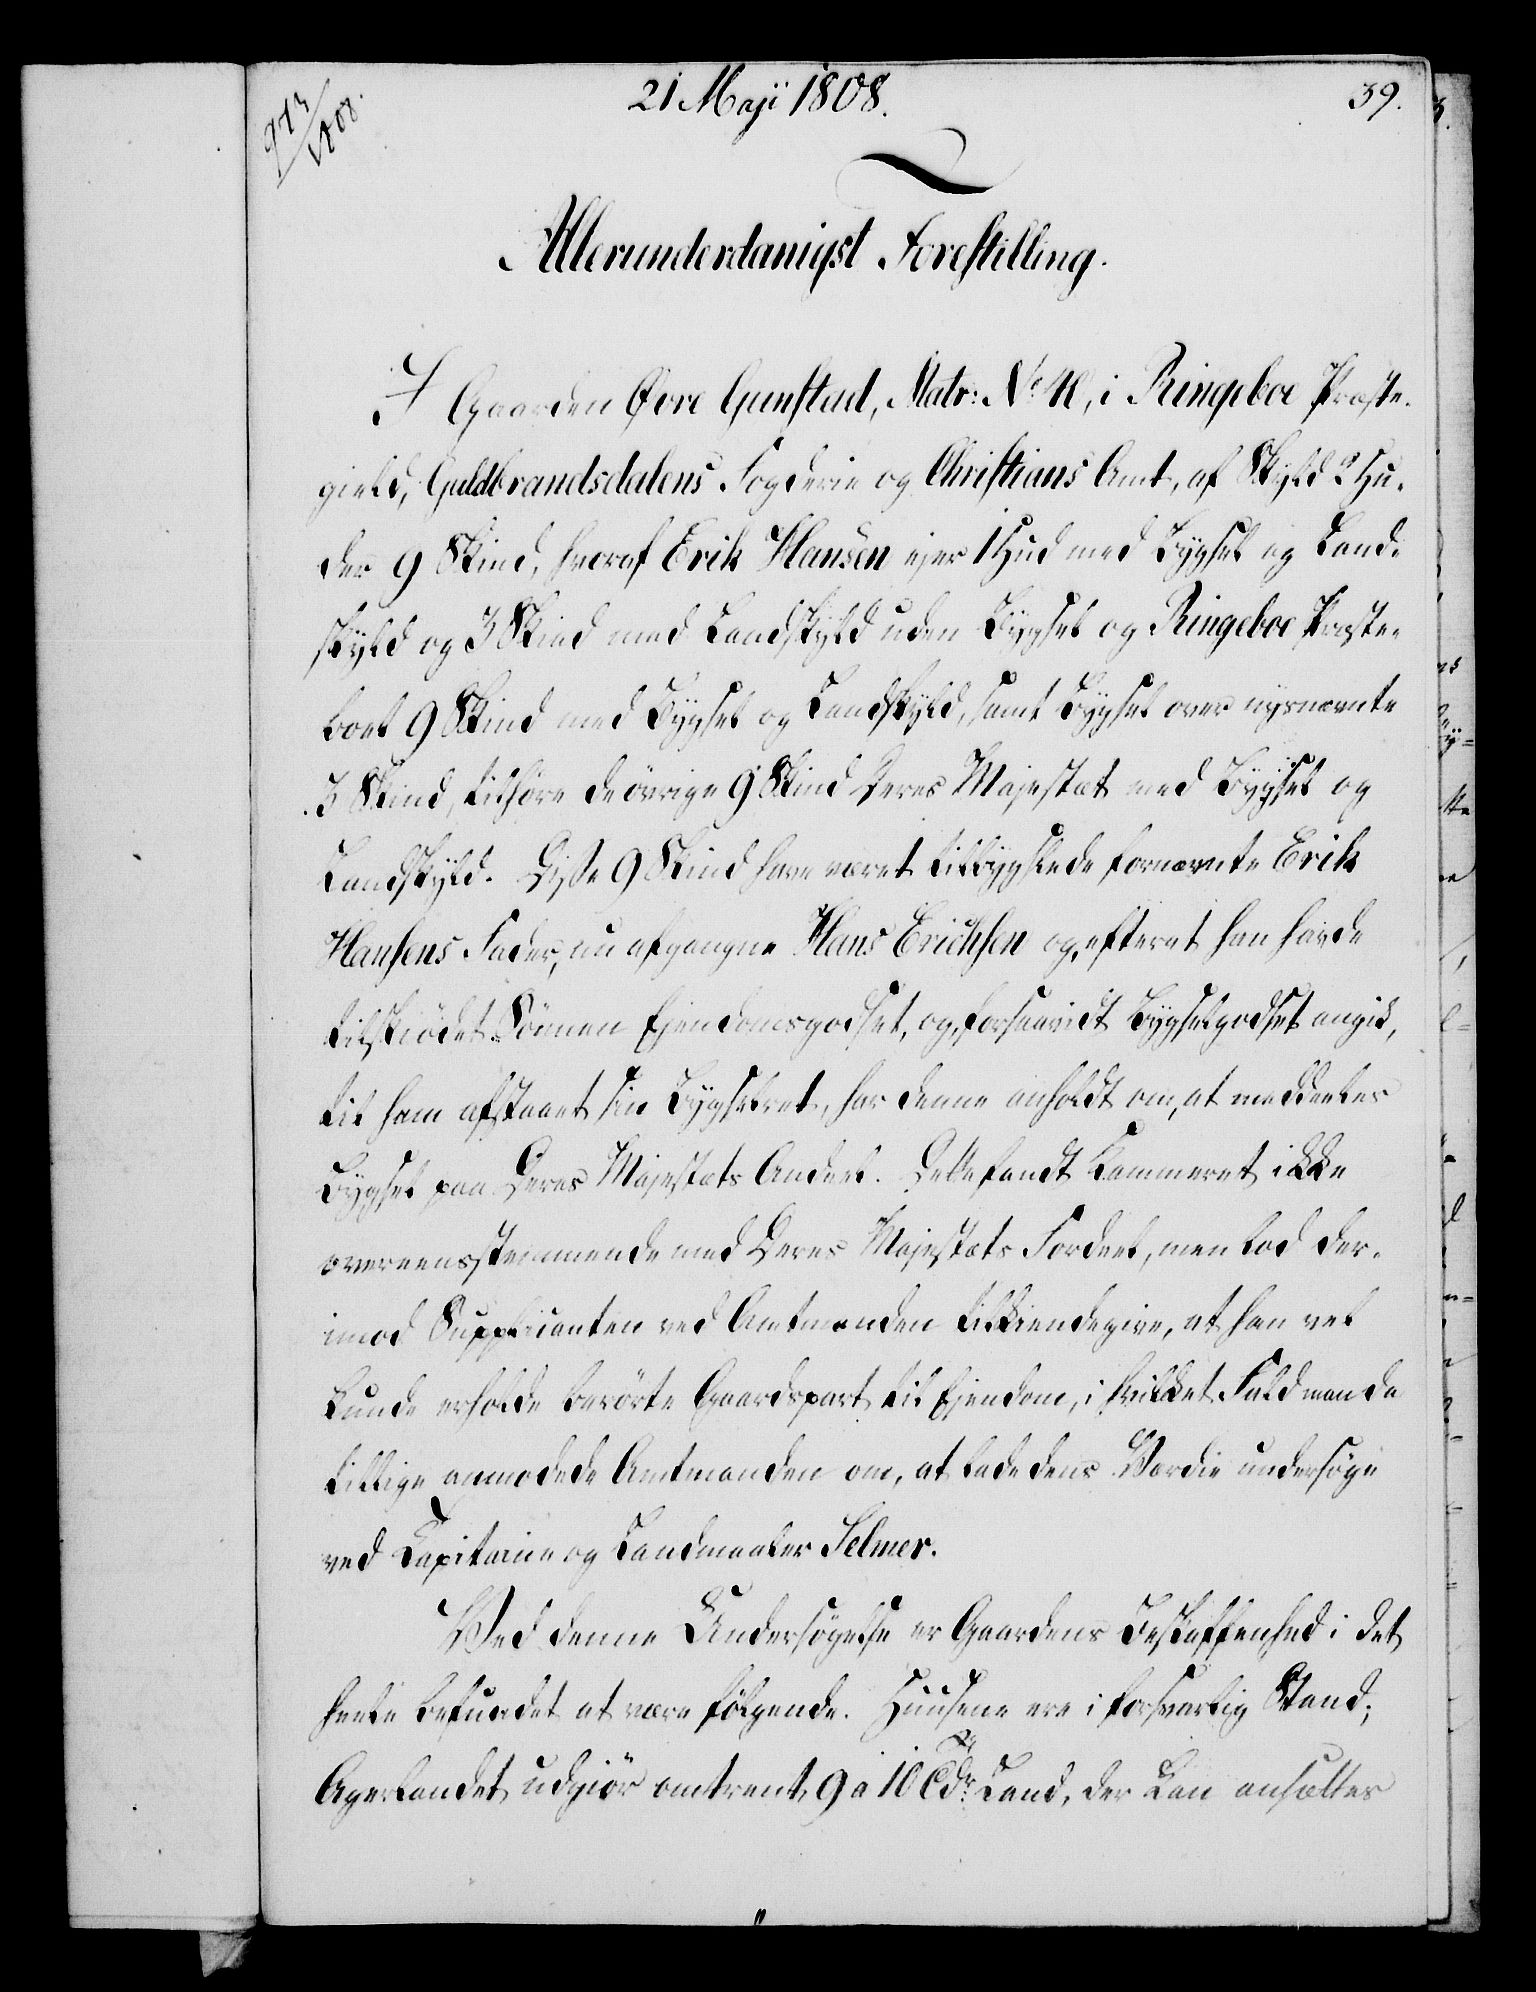 21 Maji 1808.
39.
973/1808.
Allerunderdanigst Forestilling.
I Gaarden Øvre Gunstad, Matr: No 40, i Ringeboe Præste-
gield, Guldbrandsdalens Fogderie og Christians Amt, af Skyld 2 Hu-
der 9 Skind, hvoraf Erik Hansen ejer 1 Hud med Bygsel og Land-
skyld og 3 Skind med Landskyld uden Bygsel og Ringeboe Præste-
boel 9 Skind med Bygsel og Landskyld, samt Bygsel over nysnævnte
3 Skind, tilhøre de övrige 9 Skind Deres Majestæt med Bygsel og
Landskyld. Disse 9 Skind have været tilbygslede fornævnte Erik
Hansens Fader, nu afgangne Hans Erichsen og, efterat han havde
tilskiödet Sönnen Ejendomsgodset, og, forsaavidt Bygselgodset angik,
til ham afstaaet sin Bygselret, har denne anholdt om, at meddeeles
Bygsel paa Deres Majestæts Andeel. Dette fandt Kammeret ikke
overeensstemmende med Deres Majestæts Fordeel, men lod der-
imod Supplicanten ved Amtmanden tilkiendegive, at han vel
kunde erholde berörte Gaardspart til Ejendom, i hvilket Fald man da
tillige anmodede Amtmanden om, at lade dens Værdie undersøge
ved Capitaine og Landmaaler Selmer.
Ved denne Undersøgelse er Gaardens Beskaffenhed i det
heele befundet at være følgende. Huusene ere i forsvarlig Stand;
Agerlandet udgiör omtrent 9 a 10 Tdr Land, der kan ansættes